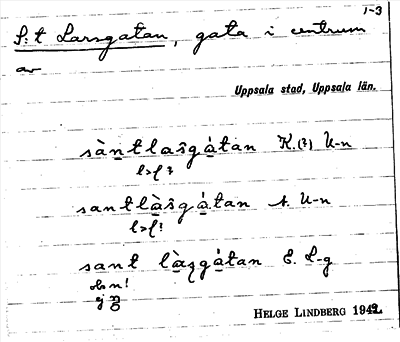 1-3
S:t Larsgatan, gata i centrum
av
Uppsala stad, Uppsala län.
sàntlasgátan K.(?) U-n
l>ɭ ?
santlàsgátan A. U-n
l>ɭ!
sant làʂgátan E. L-g
obs n!
ej
HELGE LINDBERG 1942.